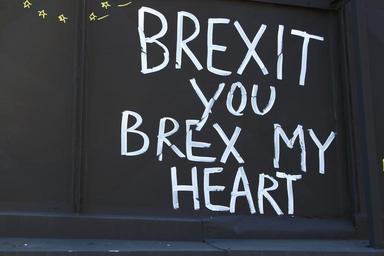 BREXIT
YOU
BREX MY
HEART